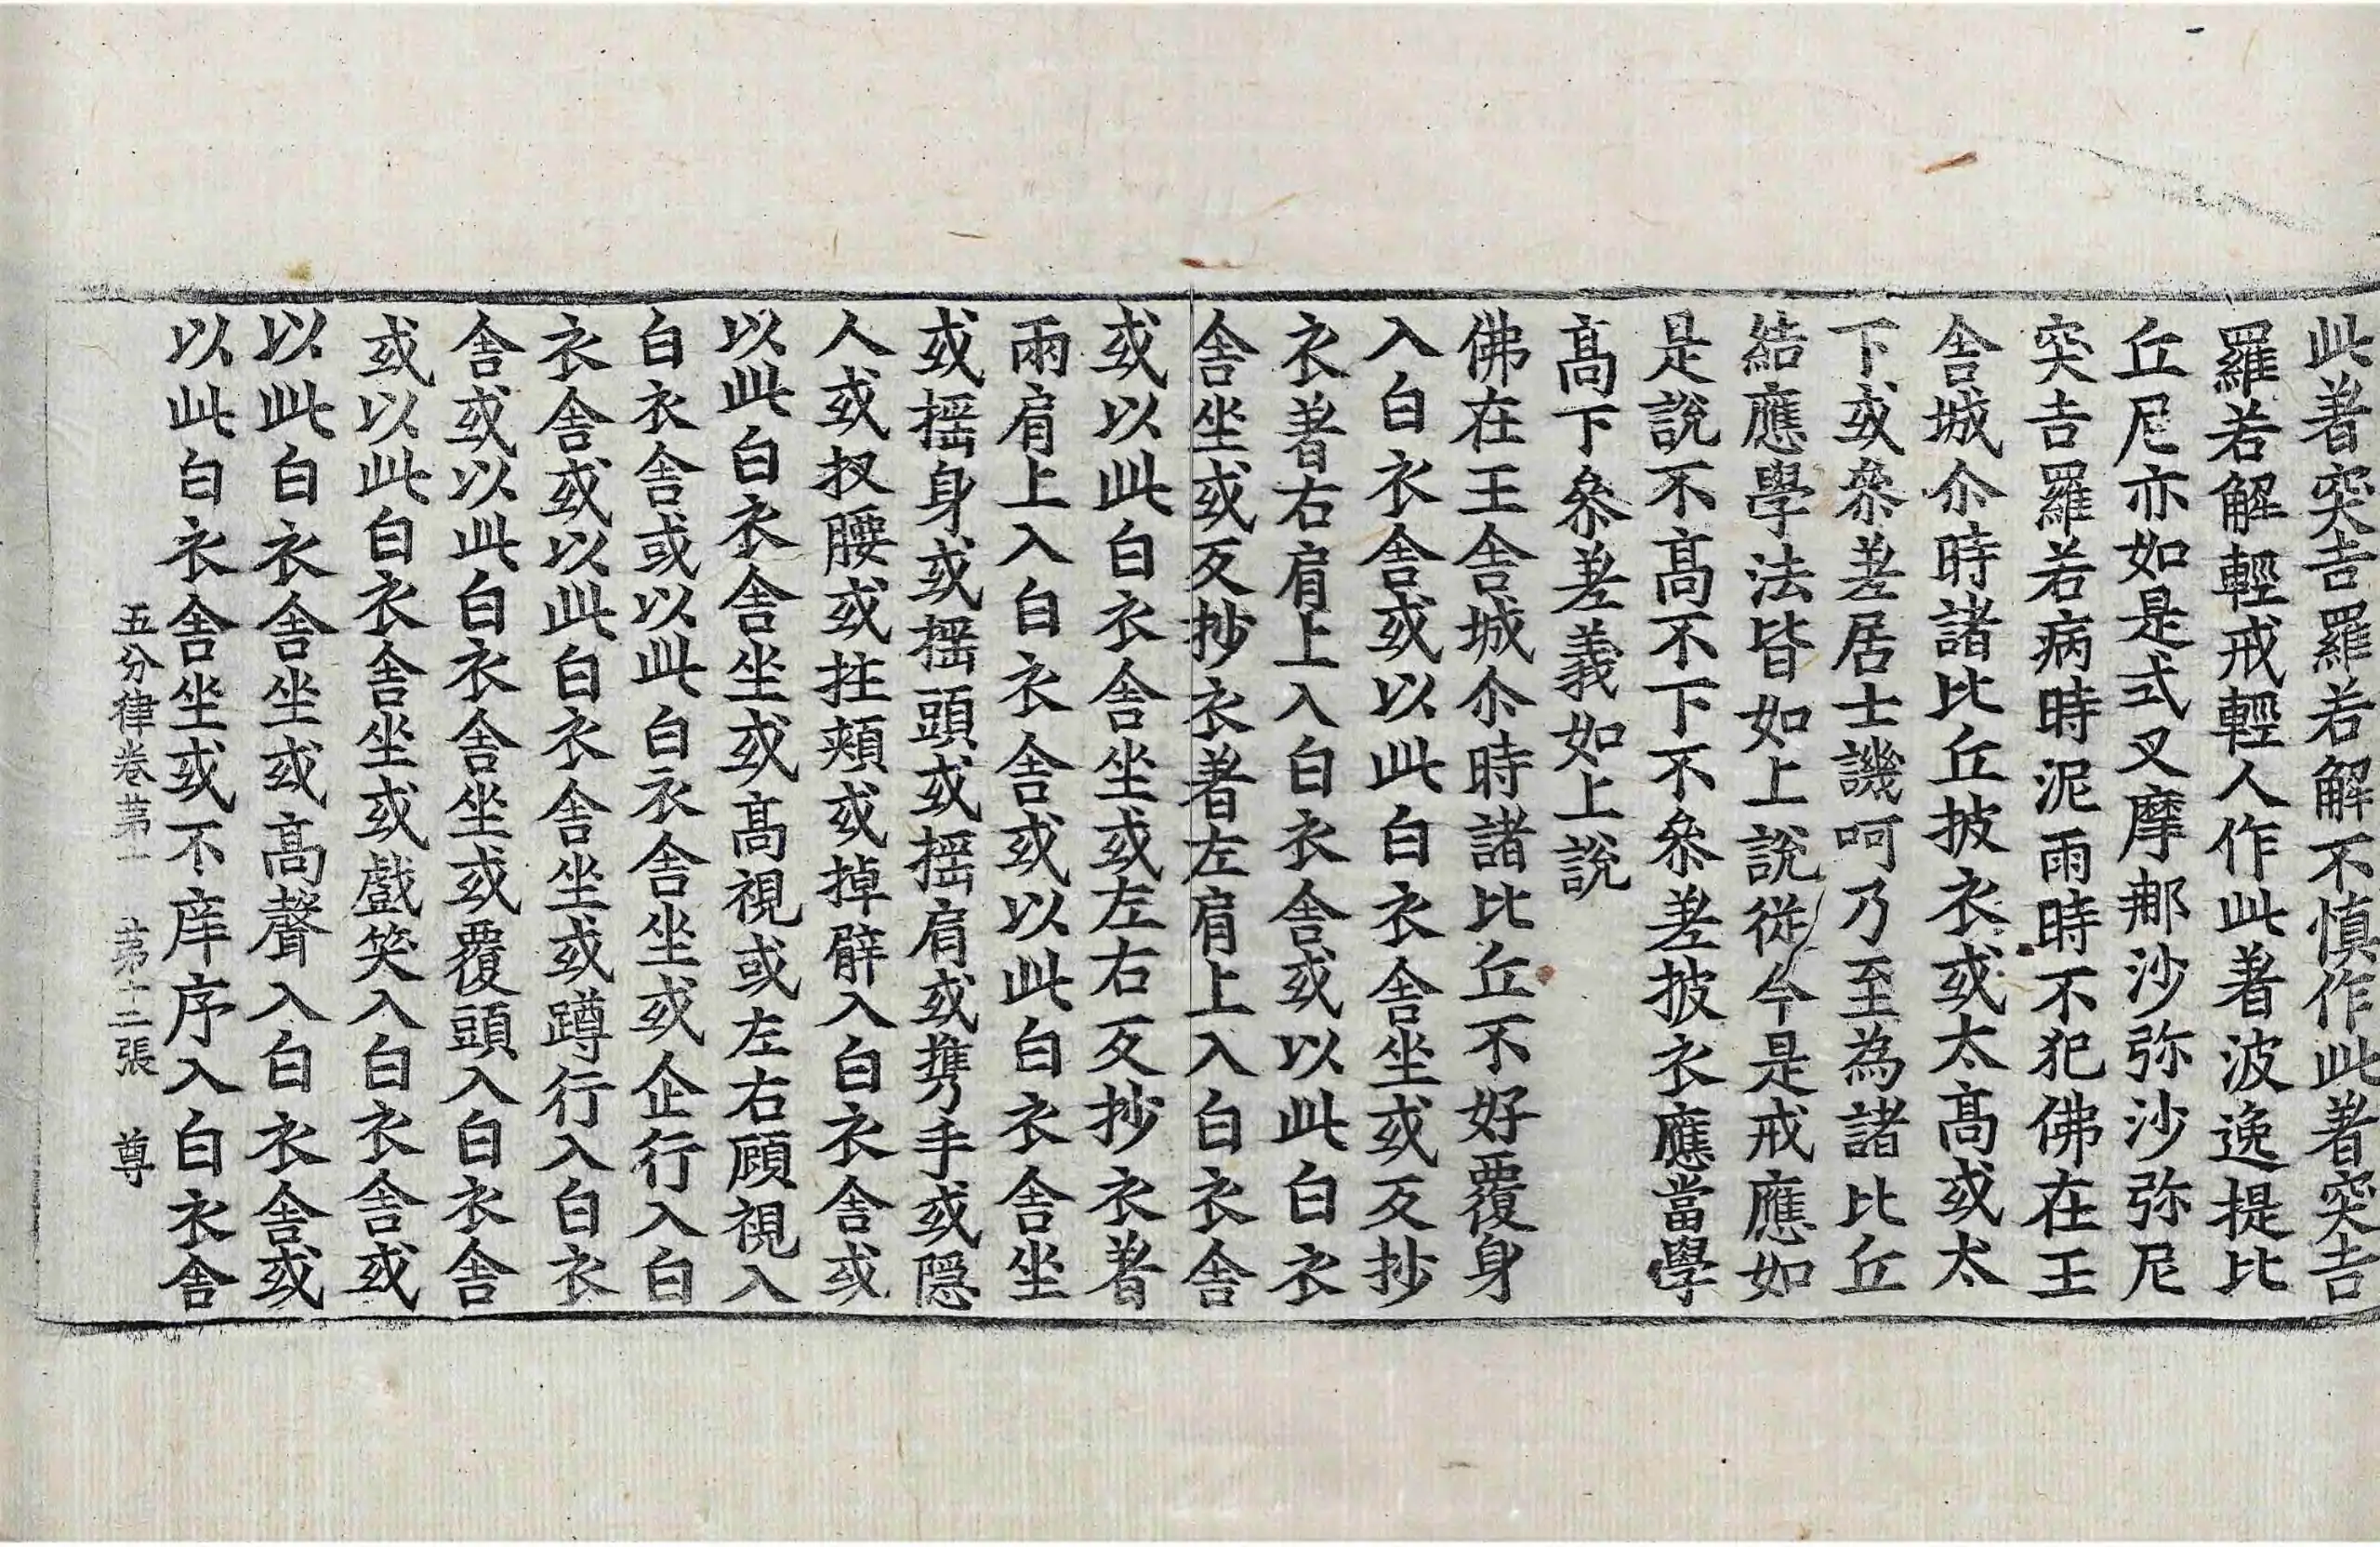 此著突吉羅若解不慎作此著突吉
羅若解輕戒輕人作此著波逸提比
丘尼亦如是式叉摩那沙弥沙弥尼
突吉羅若病時泥雨時不犯佛在王
舎城尒時諸比丘披衣或太髙或太
下或叅差居士譏呵乃至為諸比丘
結應學法皆如上說從今是戒應如
是說不髙不下不叅差披衣應當學
髙下叅差義如上說
佛在王舎城尒時諸比丘不好覆身
入白衣舎或以此白衣舎坐或反抄
衣著右肩上入白衣舎或以此白衣
舎坐或反抄衣著左肩上入白衣舎
或以此白衣舎坐或左右反抄衣著
兩肩上入白衣舎或以此白衣舎坐
或揺身或揺頭或揺肩或携手或隠
人或扠腰或拄頬或掉臂入白衣舎或
以此白衣舎坐或髙視或左右顧視入
白衣舎或以此白衣舎坐或企行入白
衣舎或以此白衣舎坐或蹲行入白衣
舎或以此白衣舎坐或覆頭入白衣舎
或以此白衣舎坐或戲笑入白衣舎或
以此白衣舎坐或髙聲入白衣舎或
以此白衣舎坐或不庠序入白衣舎
五分律卷苐一 苐十二張 尊